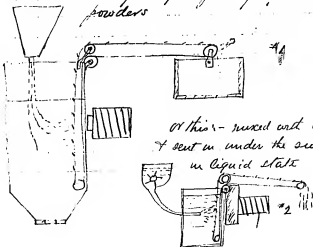 powders
or this:- mixed with
& sent in under the
in liquid state
#2